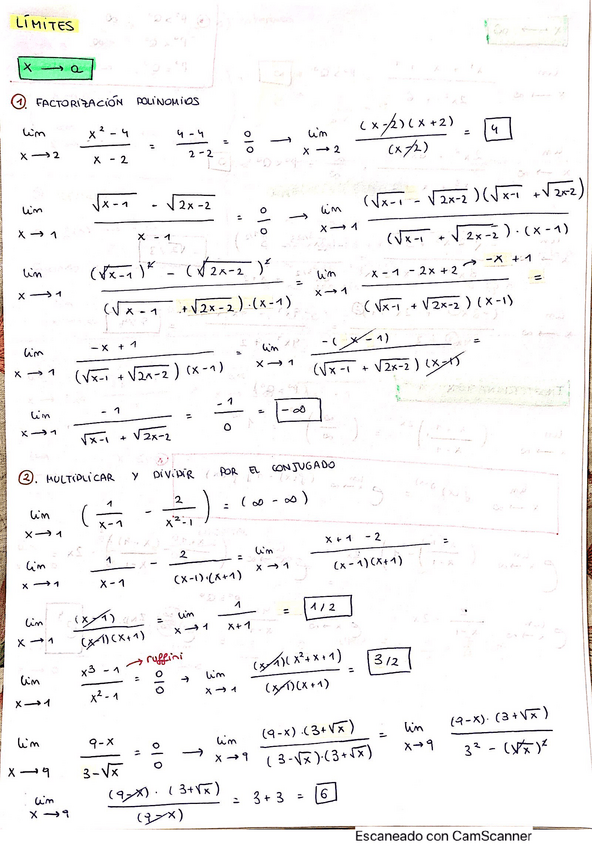 LÍMITES
x → a
①. FACTORIZACIÓN POLINOMIOS
lim x→2 (x² - 4)/(x - 2) = (4 - 4)/(2 - 2) = 0/0 → lim x→2 ((x-2)(x+2))/(x-2) = 4
lim x→1 (√x-1 - √2x-2)/(x - 1) = 0/0 → lim x→1 ((√x-1 - √2x-2)(√x-1 + √2x-2))/((√x-1 + √2x-2)·(x-1))
lim x→1 ((√x-1)² - (√2x-2)²)/((√x-1 + √2x-2)·(x-1)) = lim x→1 (x - 1 - 2x + 2 → -x + 1)/((√x-1 + √2x-2)(x-1)) =
lim x→1 (-x + 1)/((√x-1 + √2x-2)(x-1)) = lim x→1 (-(x-1))/((√x-1 + √2x-2)(x-1)) =
lim x→1 (-1)/(√x-1 + √2x-2) = -1/0 = -∞
②. MULTIPLICAR Y DIVIDIR POR EL CONJUGADO
lim x→1 (1/(x-1) - 2/(x²-1)) = (∞ - ∞)
lim x→1 1/(x-1) - 2/((x-1)·(x+1)) = lim x→1 (x+1 - 2)/((x-1)(x+1)) =
lim x→1 (x-1)/((x-1)(x+1)) = lim x→1 1/(x+1) = 1/2
lim x→1 (x³ - 1)/(x² - 1) → ruffini = 0/0 → lim x→1 ((x-1)(x²+x+1))/((x-1)(x+1)) = 3/2
lim x→9 (9-x)/(3-√x) = 0/0 → lim x→9 ((9-x)·(3+√x))/((3-√x)·(3+√x)) = lim x→9 ((9-x)·(3+√x))/(3² - (√x)²)
lim x→9 ((9-x)·(3+√x))/(9-x) = 3+3 = 6
Escaneado con CamScanner